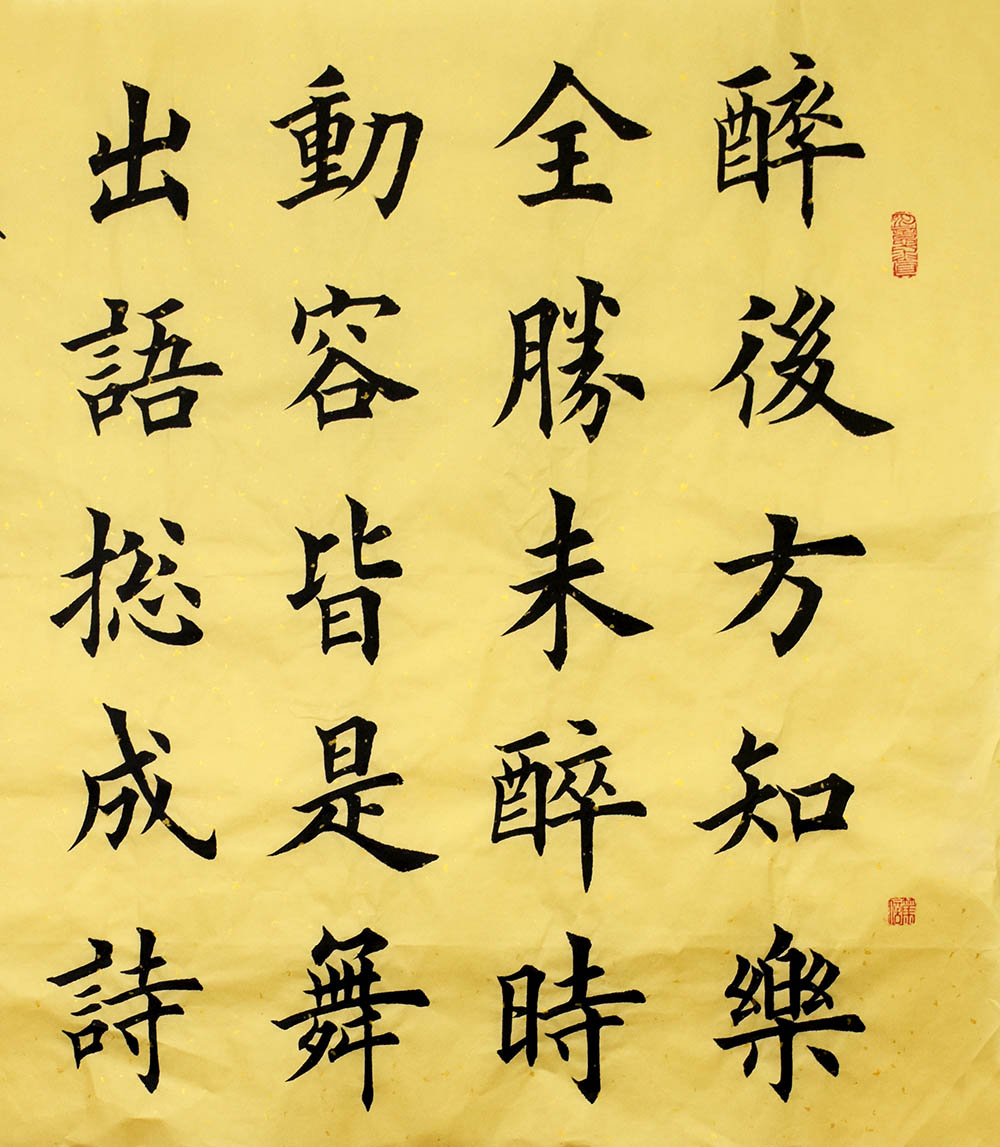 醉後方知樂
全勝未醉時
動容皆是舞
出語揔成詩